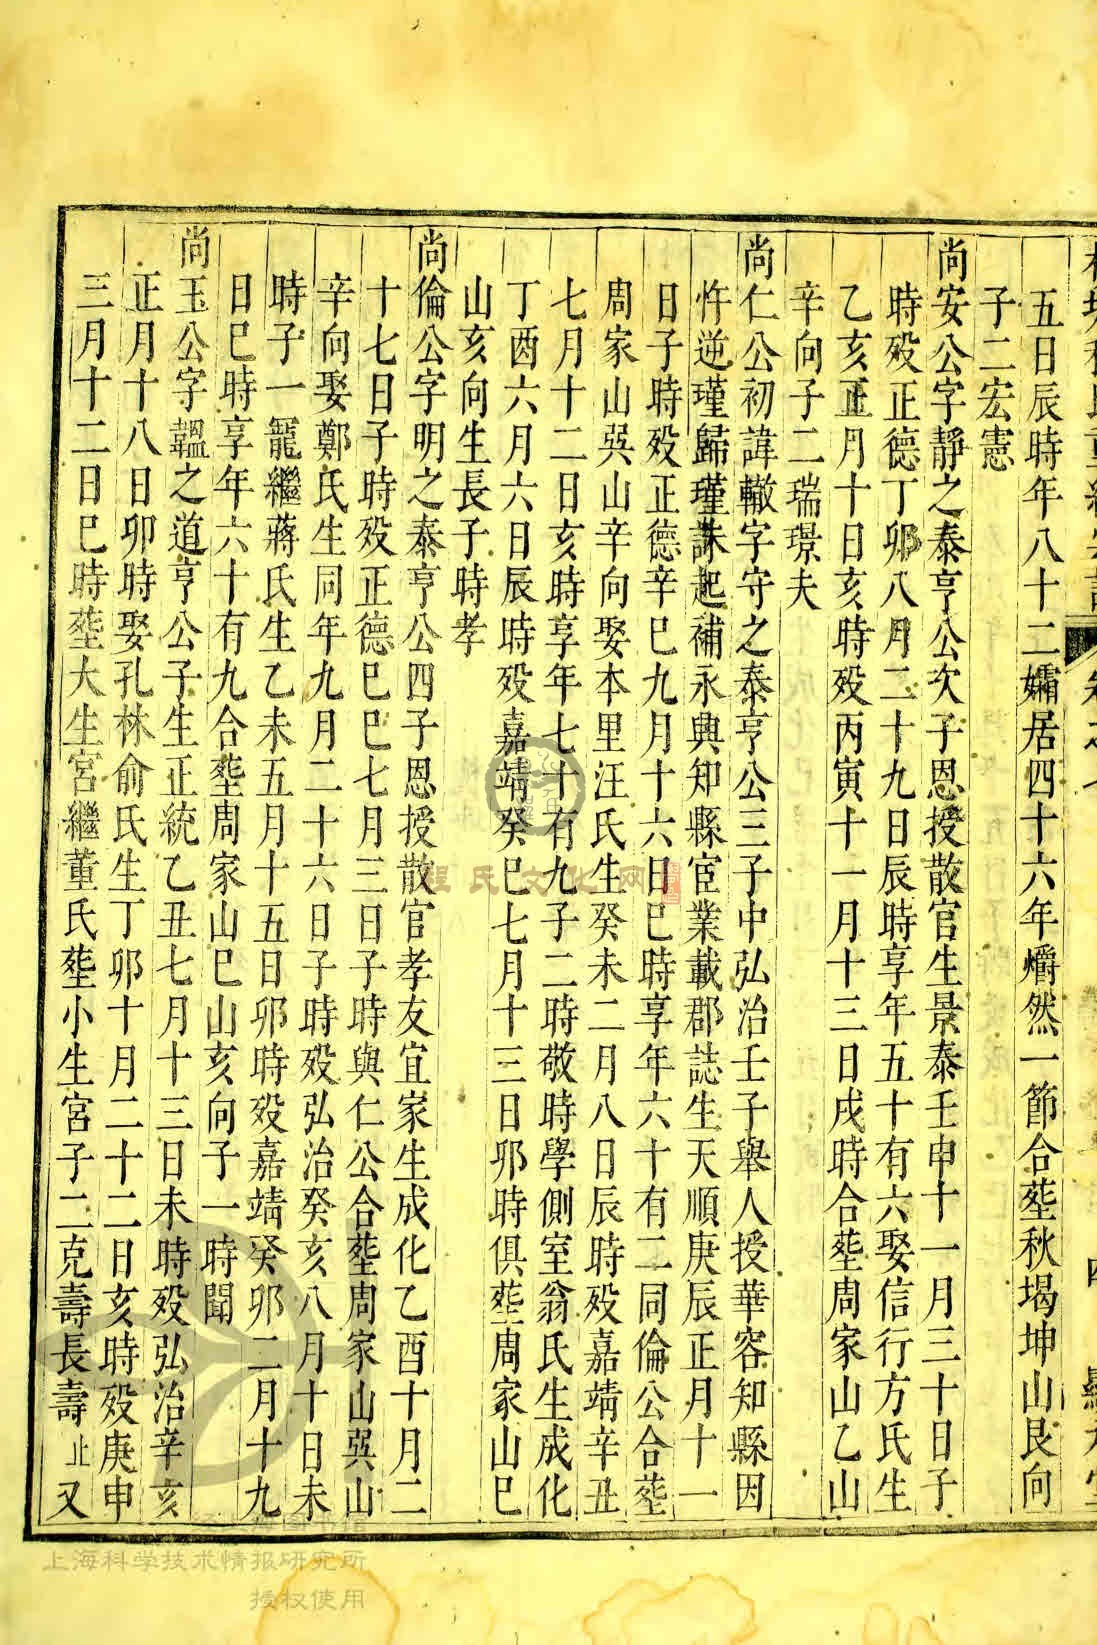 五日辰時年八十二孀居四十六年皭然一節合塟秋塲坤山艮向
子二宏憲
尚安公字靜之泰亨公次子恩授散官生景泰壬申十一月三十日子
時歿正德丁卯八月二十九日辰時享年五十有六娶信行方氏生
乙亥正月十日亥時歿丙寅十一月十三日戌時合塟周家山乙山
辛向子二瑞璟夫
尚仁公初諱轍字守之泰亨公三子中弘治壬子舉人授華容知縣因
忤逆瑾歸瑾誅起補永興知縣宦業載郡誌生天順庚辰正月十一
日子時歿正德辛巳九月十六日巳時享年六十有二同倫公合塟
周家山巽山辛向娶本里汪氏生癸未二月八日辰時歿嘉靖辛丑
七月十二日亥時享年七十有九子二時敬時學側室翁氏生成化
丁酉六月六日辰時歿嘉靖癸巳七月十三日卯時俱塟周家山巳
山亥向生長子時孝
尚倫公字明之泰亨公四子恩授散官孝友宜家生成化乙酉十月二
十七日子時歿正德己巳七月三日子時與仁公合塟周家山巽山
辛向娶鄭氏生同年九月二十六日子時歿弘治癸亥八月十日未
時子一寵繼蔣氏生乙未五月十五日卯時歿嘉靖癸卯二月十九
日巳時享年六十有九合塟周家山巳山亥向子一時聞
尚玉公字韞之道亨公子生正統乙丑七月十三日未時歿弘治辛亥
正月十八日卯時娶孔林俞氏生丁卯十月二十二日亥時歿庚申
三月十二日巳時塟大生宮繼董氏塟小生宮子二克壽長壽止又
程氏文化网
上海科学技术情报研究所
授权使用